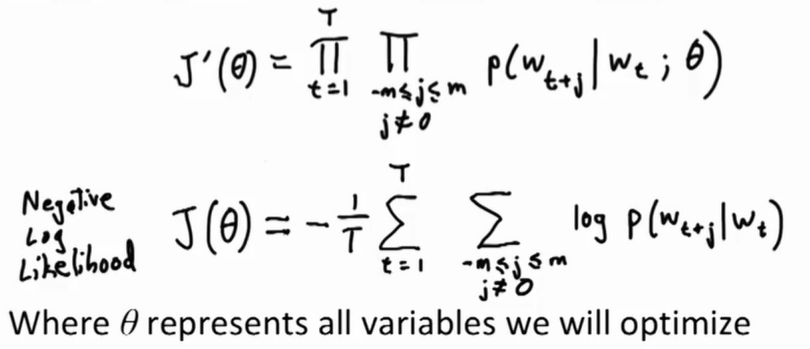 J'(θ) = ∏_{t=1}^{T} ∏_{-m≤j≤m, j≠0} p(w_{t+j} | w_t ; θ)
Negative Log Likelihood J(θ) = -1/T ∑_{t=1}^{T} ∑_{-m≤j≤m, j≠0} log p(w_{t+j} | w_t)
Where θ represents all variables we will optimize